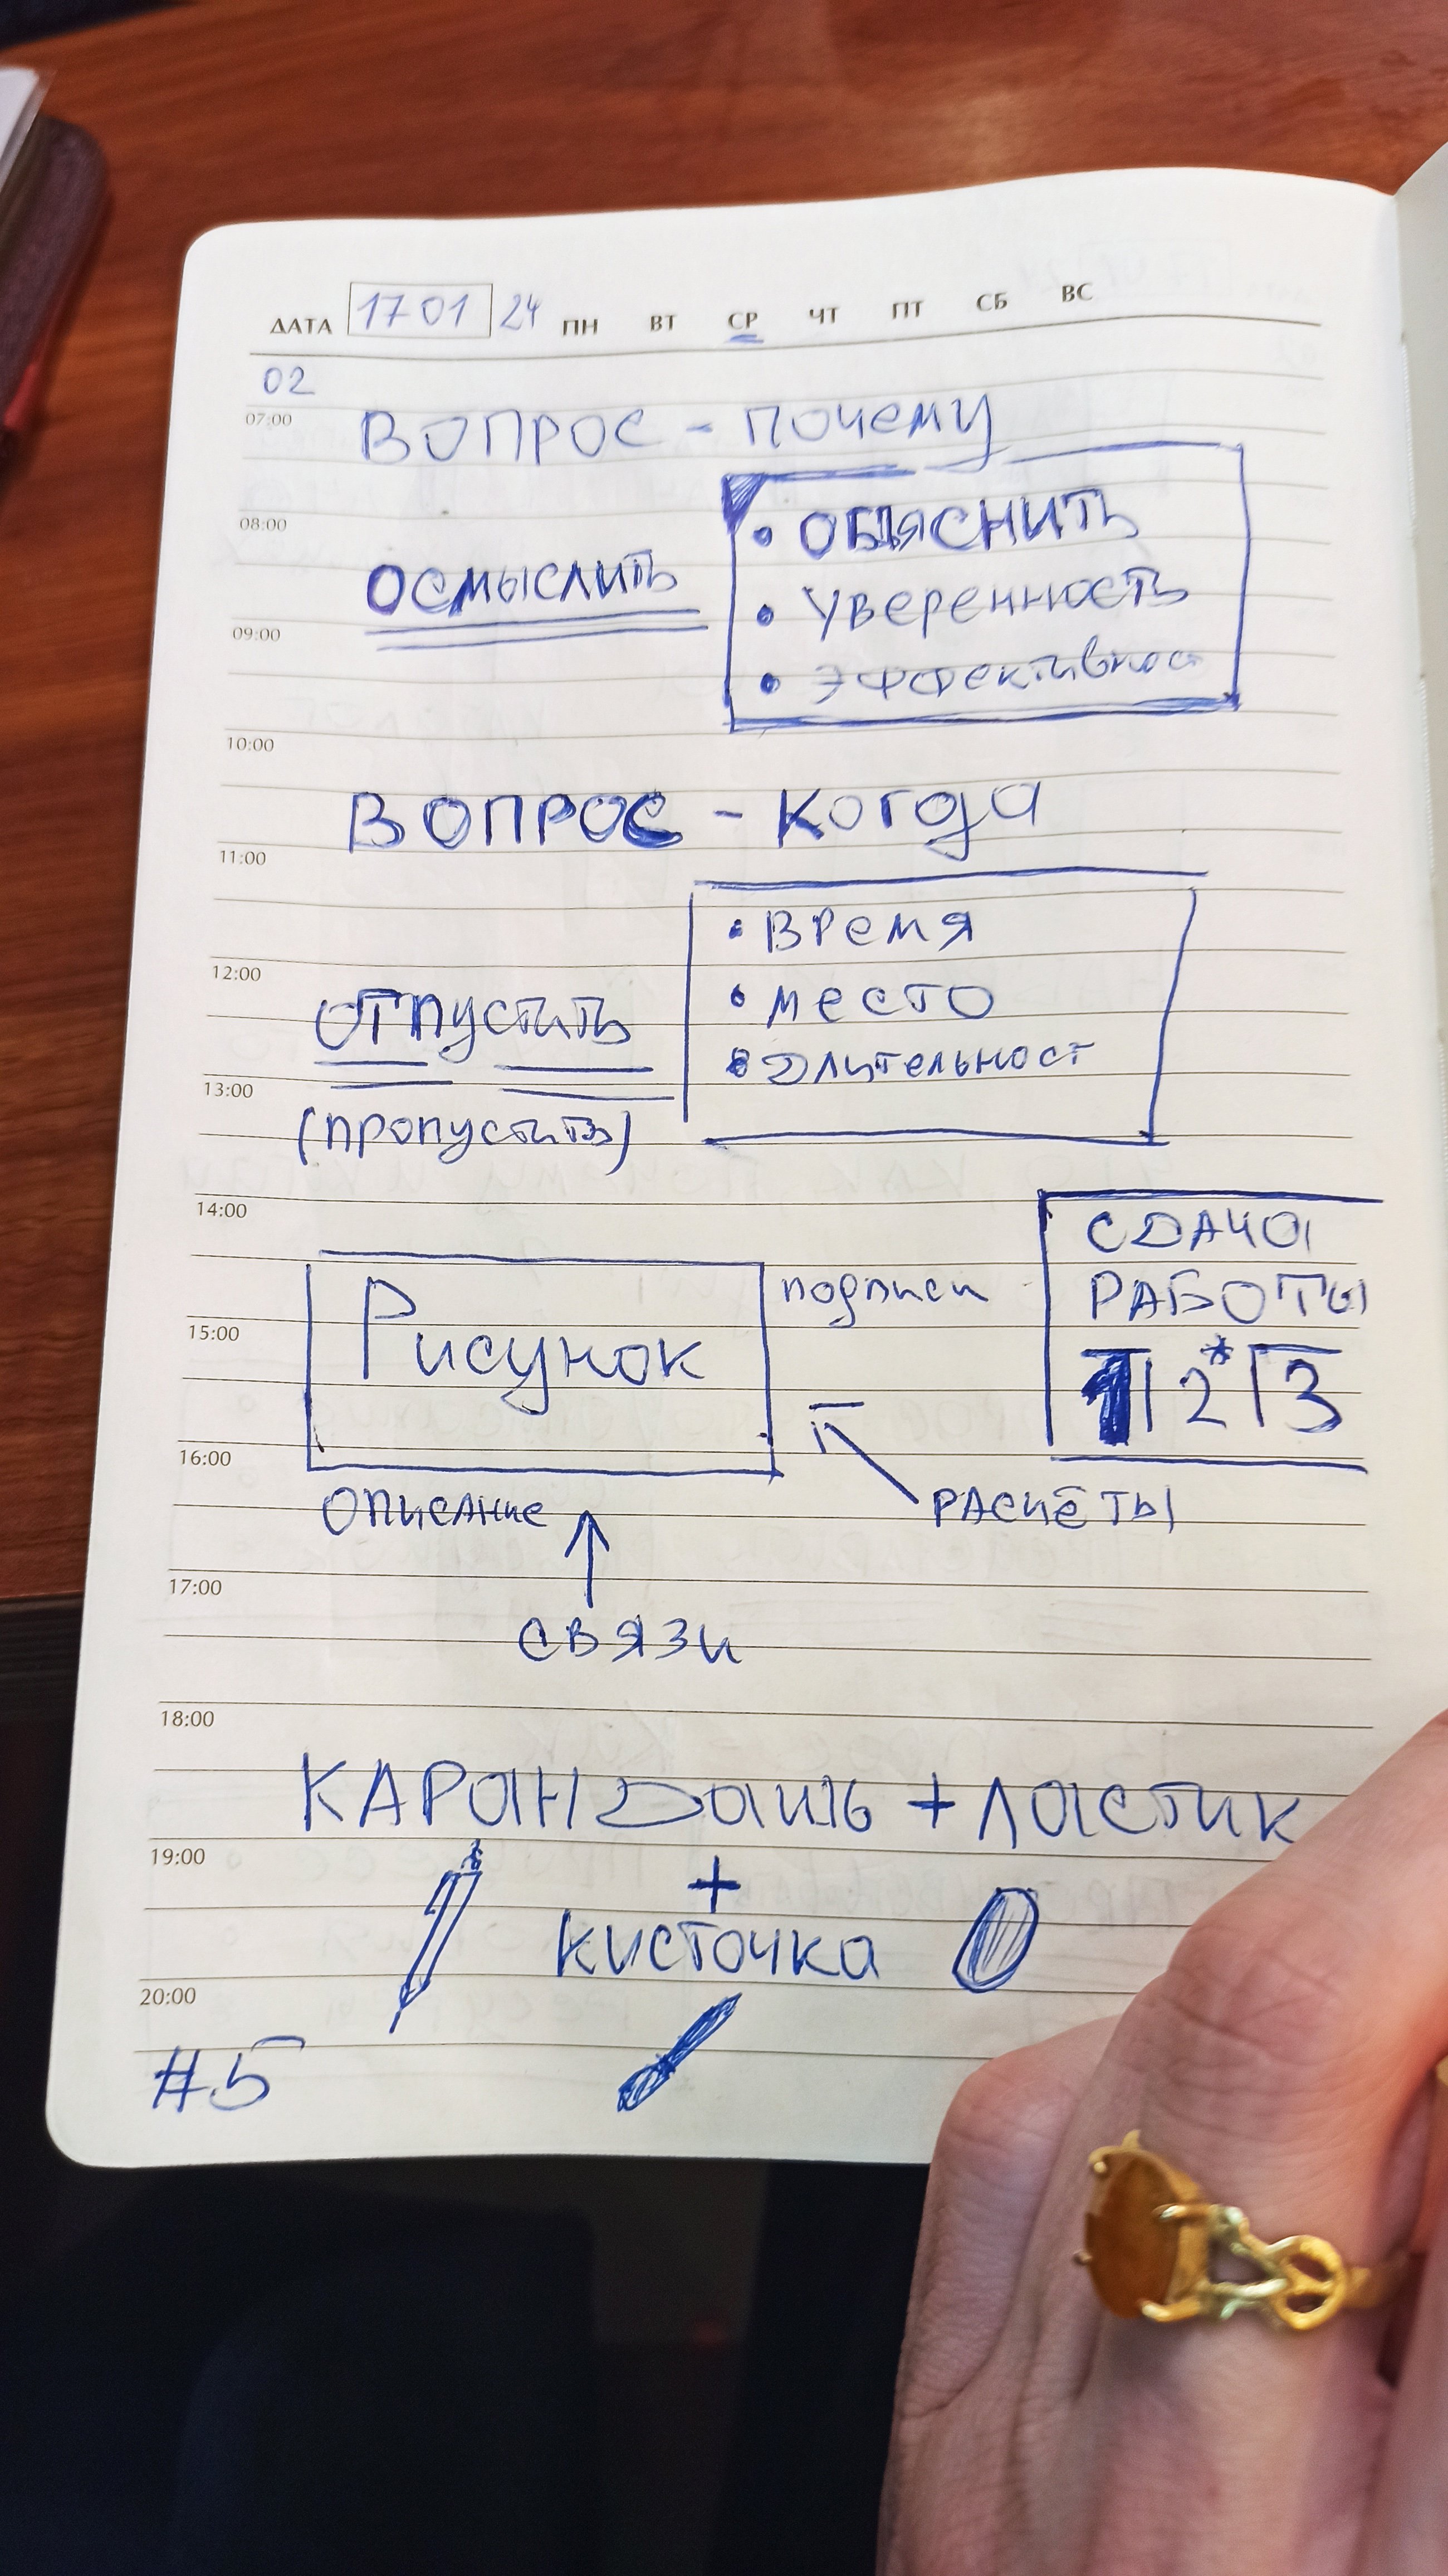 ДАТА 17 01 24 ПН ВТ СР ЧТ ПТ СБ ВС
02
07:00
ВОПРОС - почему
08:00
• ОБЪЯСНИТЬ
ОСМЫСЛИТЬ
• Уверенность
09:00
• Эффективност
10:00
ВОПРОС - когда
11:00
• Время
12:00
• место
ОТПУСТИТЬ
• Длительност
13:00
(пропустить)
14:00
СДАЧА
РАБОТЫ
1 | 2* | 3
Рисунок
подписи
15:00
16:00
описание
РАСЧЁТЫ
17:00
СВЯЗИ
18:00
КАРАНДашь + ластик
19:00
+
кисточка
20:00
#5